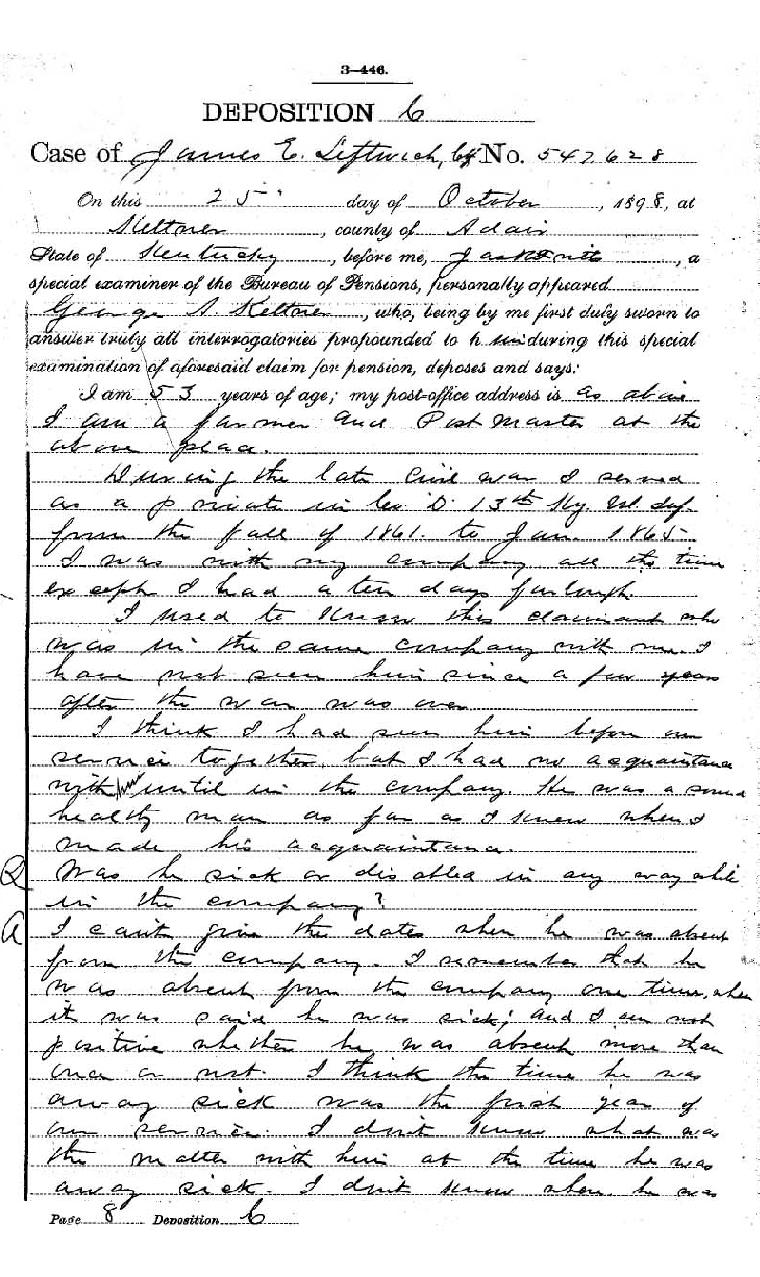 3—446.
DEPOSITION C
Case of James E. Leftwich, No. 547628
On this 25" day of October, 1898, at
Keltner, county of Adair
State of Kentucky, before me, , a
special examiner of the Bureau of Pensions, personally appeared
George A. Keltner, who, being by me first duly sworn to
answer truly all interrogatories propounded to him during this special
examination of aforesaid claim for pension, deposes and says:
I am 53 years of age; my post-office address is as above
I am a farmer and Post Master at the
above place.
During the late Civil war I served
as a private in Co. D. 13th Ky. Vol. Inf.
from the fall of 1861. to Jan. 1865
I was with my company all the time
except I had a ten days furlough.
I used to know this claimant who
was in the same company with me. I
have not seen him since a few years
after the war was over
I think I had seen him before our
service together, but I had no acquaintance
with him until in the company. He was a sound
healthy man as far as I knew when I
made his acquaintance.
Q Was he sick or disabled in any way while
in the company?
A I can't give the dates when he was absent
from the company. I remember that he
was absent from the company one time, when
it was said he was sick; and I am not
positive whether he was absent more than
once or not. I think the time he was
away sick was the first year of
our service. I don't know what was
the matter with him at the time he was
away sick. I don't know when he was
Page 8 Deposition C